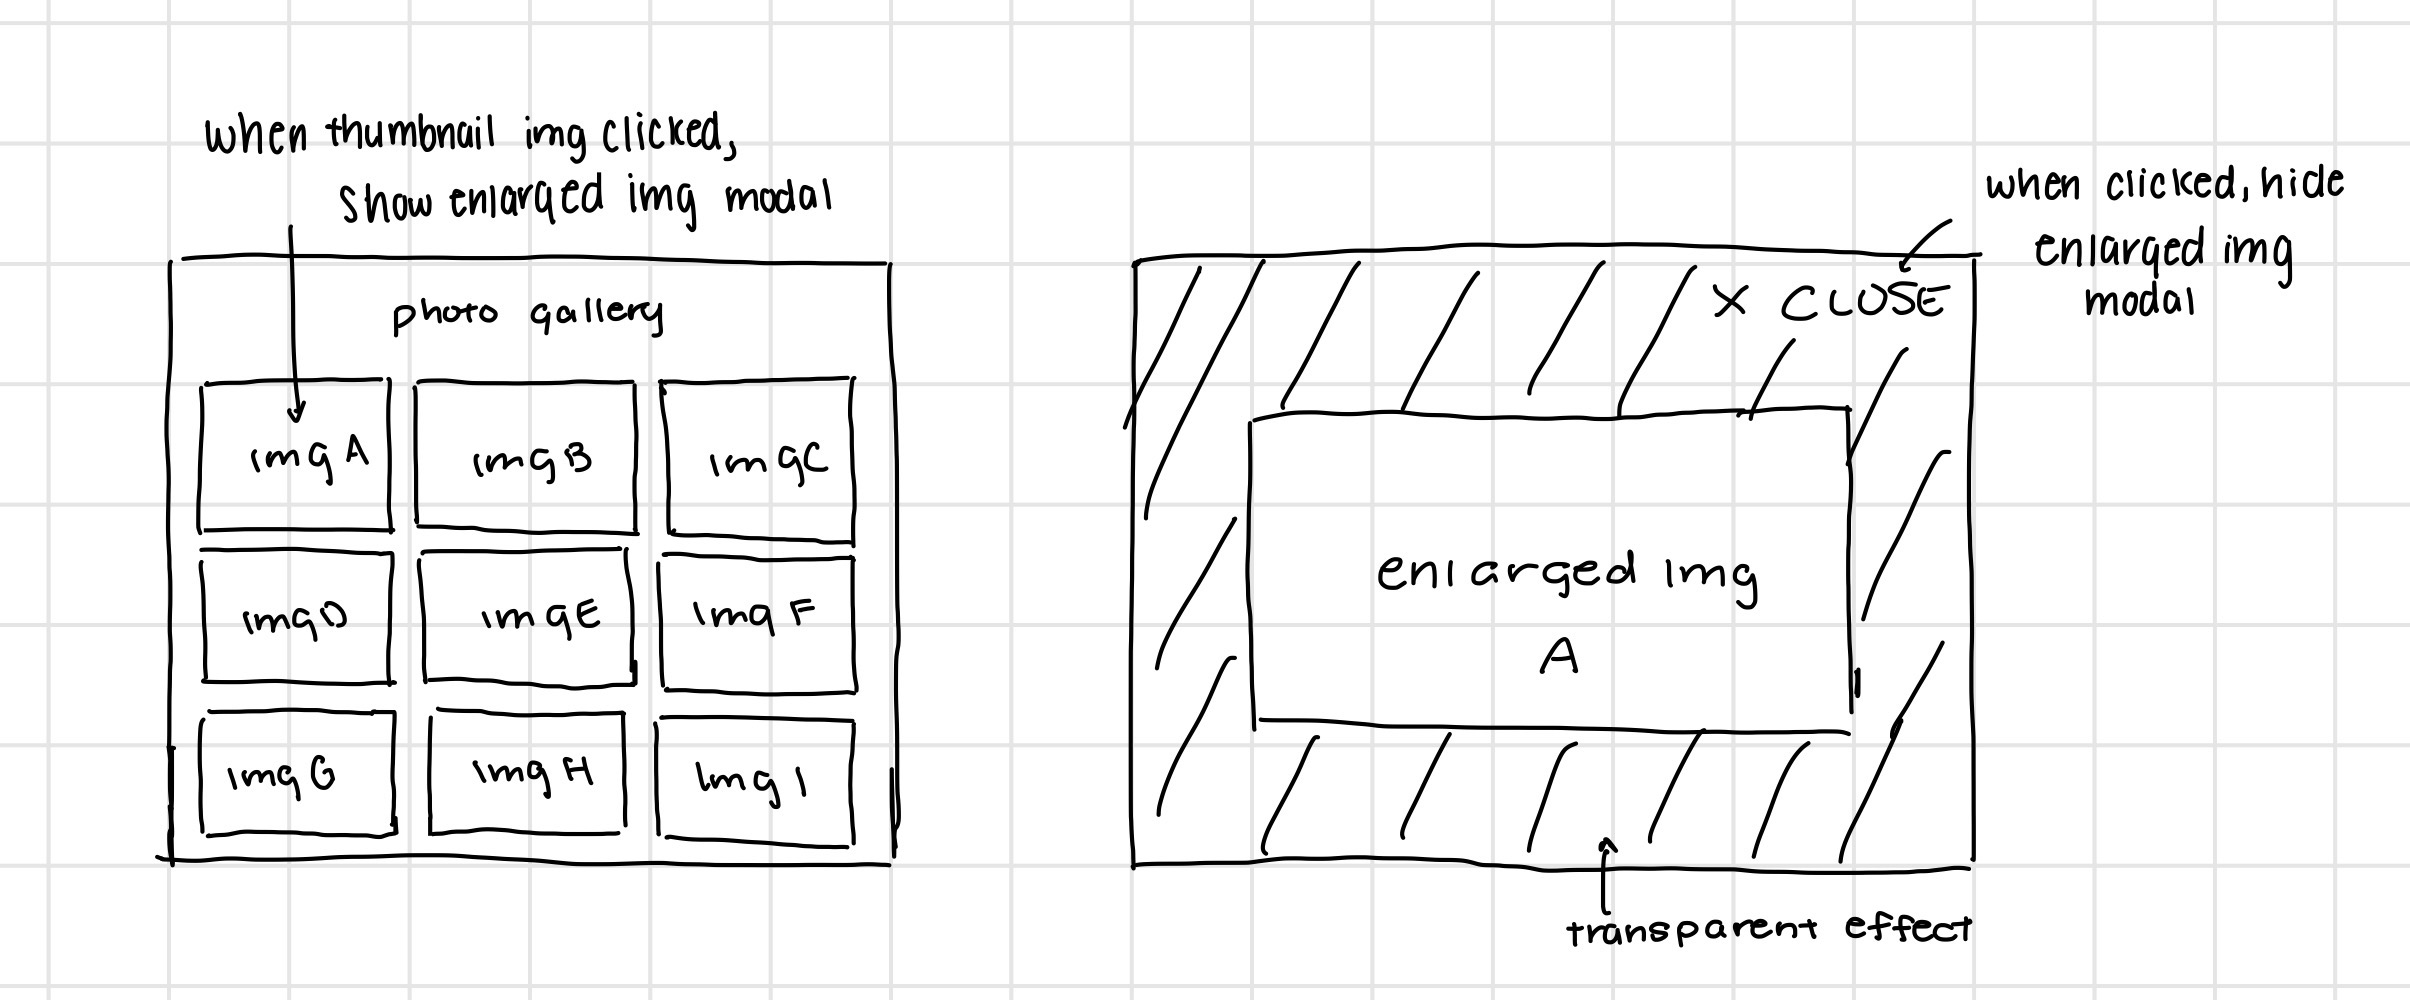 when thumbnail img clicked,
show enlarged img modal
photo gallery
img A
img B
img C
img D
img E
img F
img G
img H
img I
when clicked, hide
enlarged img
modal
X CLOSE
enlarged img
A
transparent effect